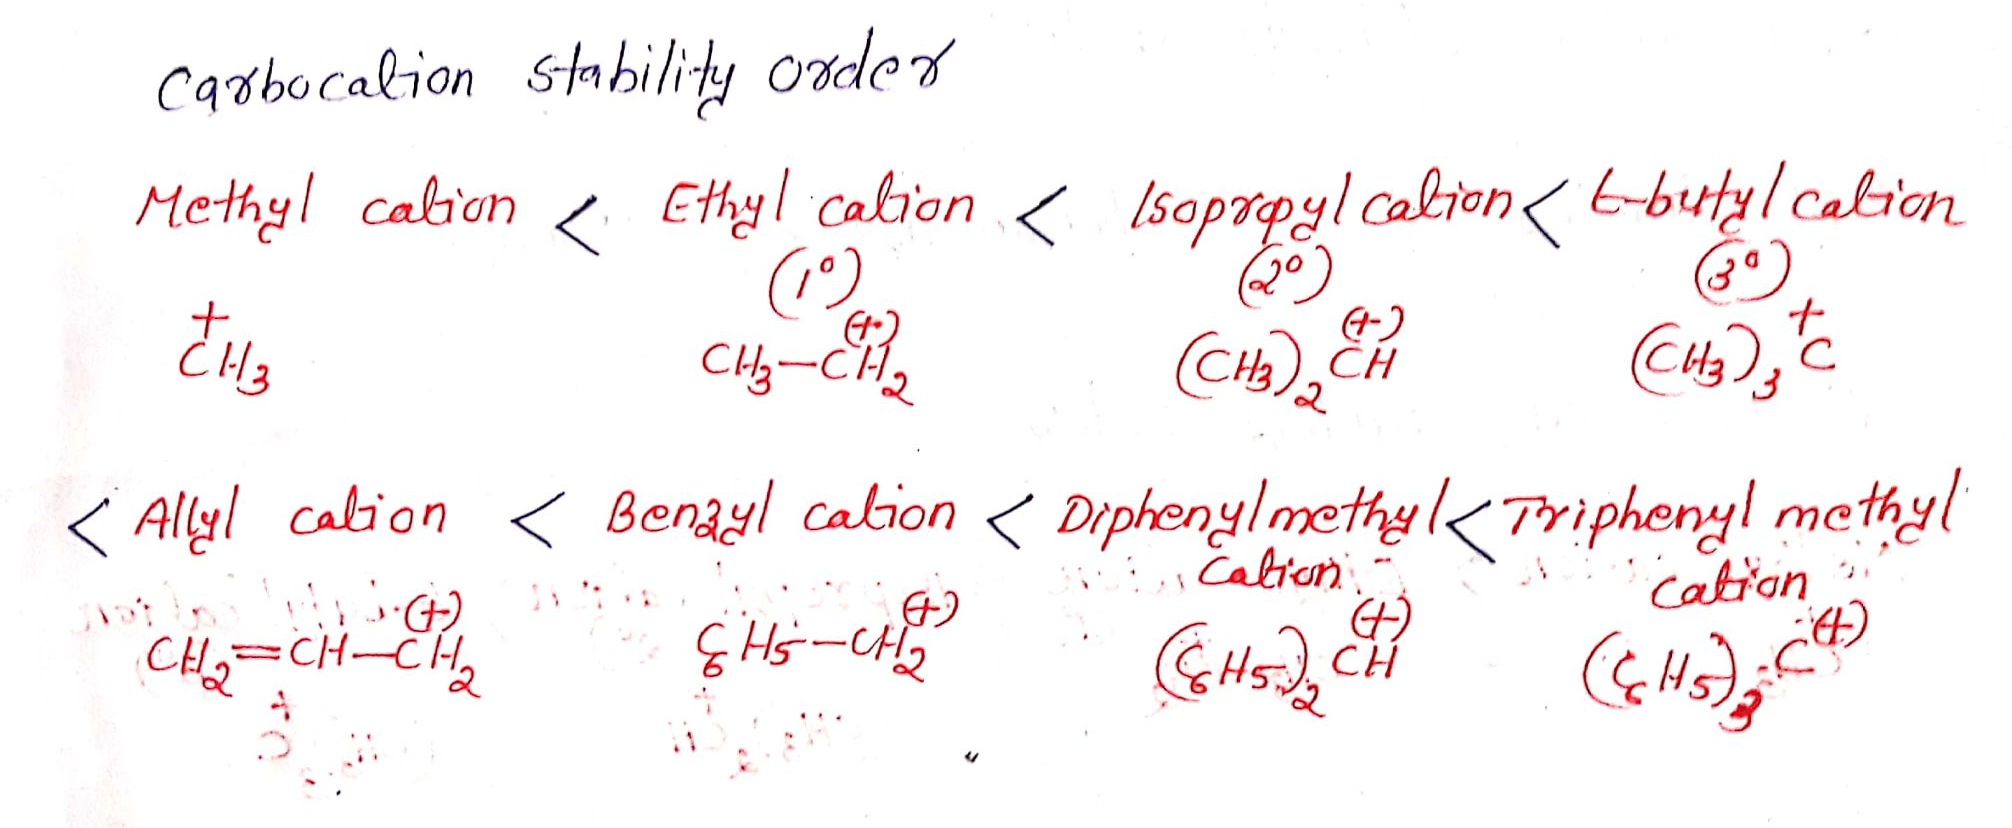 Carbocation stability order
Methyl cation < Ethyl cation < Isopropyl cation < t-butyl cation
(1°) (2°) (3°)
+ (+) (+) +
CH3 CH3-CH2 (CH3)2 CH (CH3)3 C
< Allyl cation < Benzyl cation < Diphenylmethyl < Triphenyl methyl
cation cation
(+) (+) (+) (+)
CH2=CH-CH2 C6H5-CH2 (C6H5)2 CH (C6H5)3 C